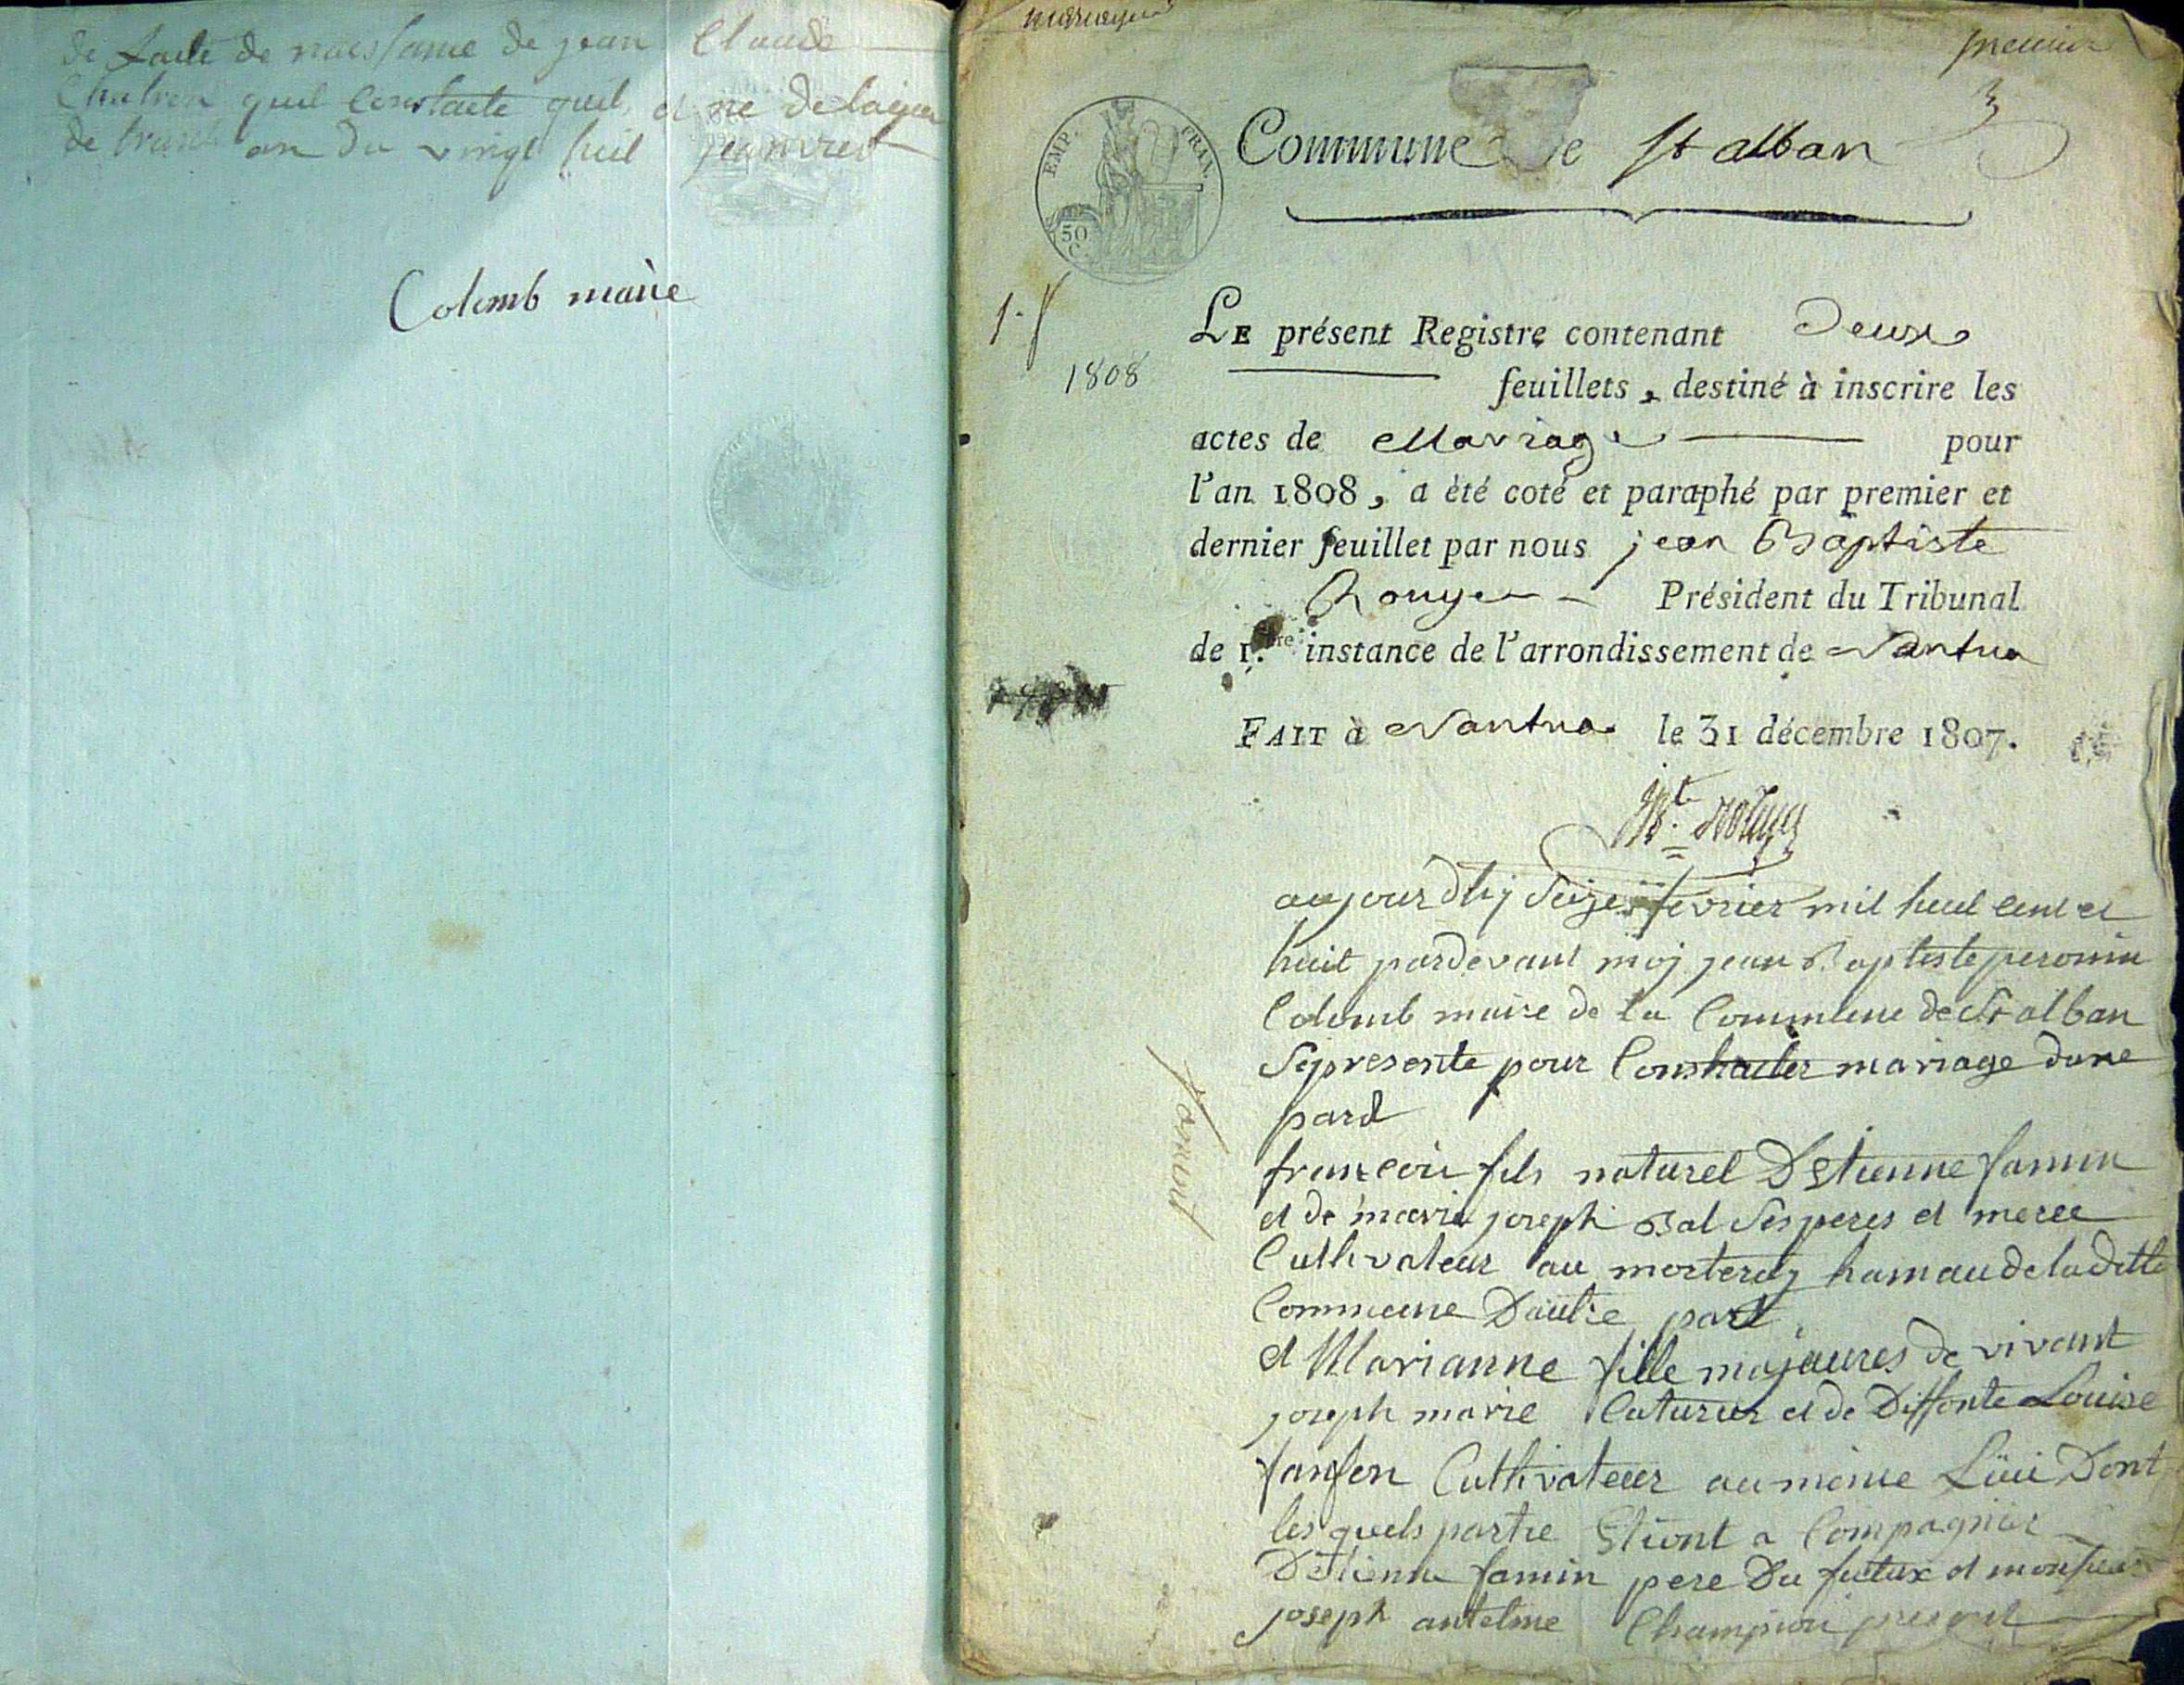 de lacte de naissance de jean Claude
quil Constate quil et ne de lage
de trante an du vingt huit janvier
Colomb maire
mariages
premier
3
EMP. FRAN.
50 C.
Commune de St alban
1.
1808
LE présent Registre contenant Deux
feuillets, destiné à inscrire les
actes de Mariage pour
l'an 1808, a été coté et paraphé par premier et
dernier feuillet par nous jean Baptiste
Rouyer Président du Tribunal
de 1.ere instance de l'arrondissement de Nantua
FAIT à Nantua le 31 décembre 1807.
JB.te Rouyer
aujourdhy seize fevrier mil huit cent et
huit pardevant moj jean Baptiste peronin
Colomb maire de la Commune de St alban
Sepresente pour Constracter mariage dune
pard
famin
francois fils naturel DEtienne famin
et de marie joseph Bal Ses peres et meree
Cultivateur au morteray hamau de la ditte
Commune Dautre part
et Marianne fille majeures de vivant
joseph marie Caturier et de Deffonte Louise
fanfon Cultivateur au meme Lieu Dont
les quels partie Etiont a Compagnier
DEtienne famin pere Du futux et monsieur
joseph antelme Champion present